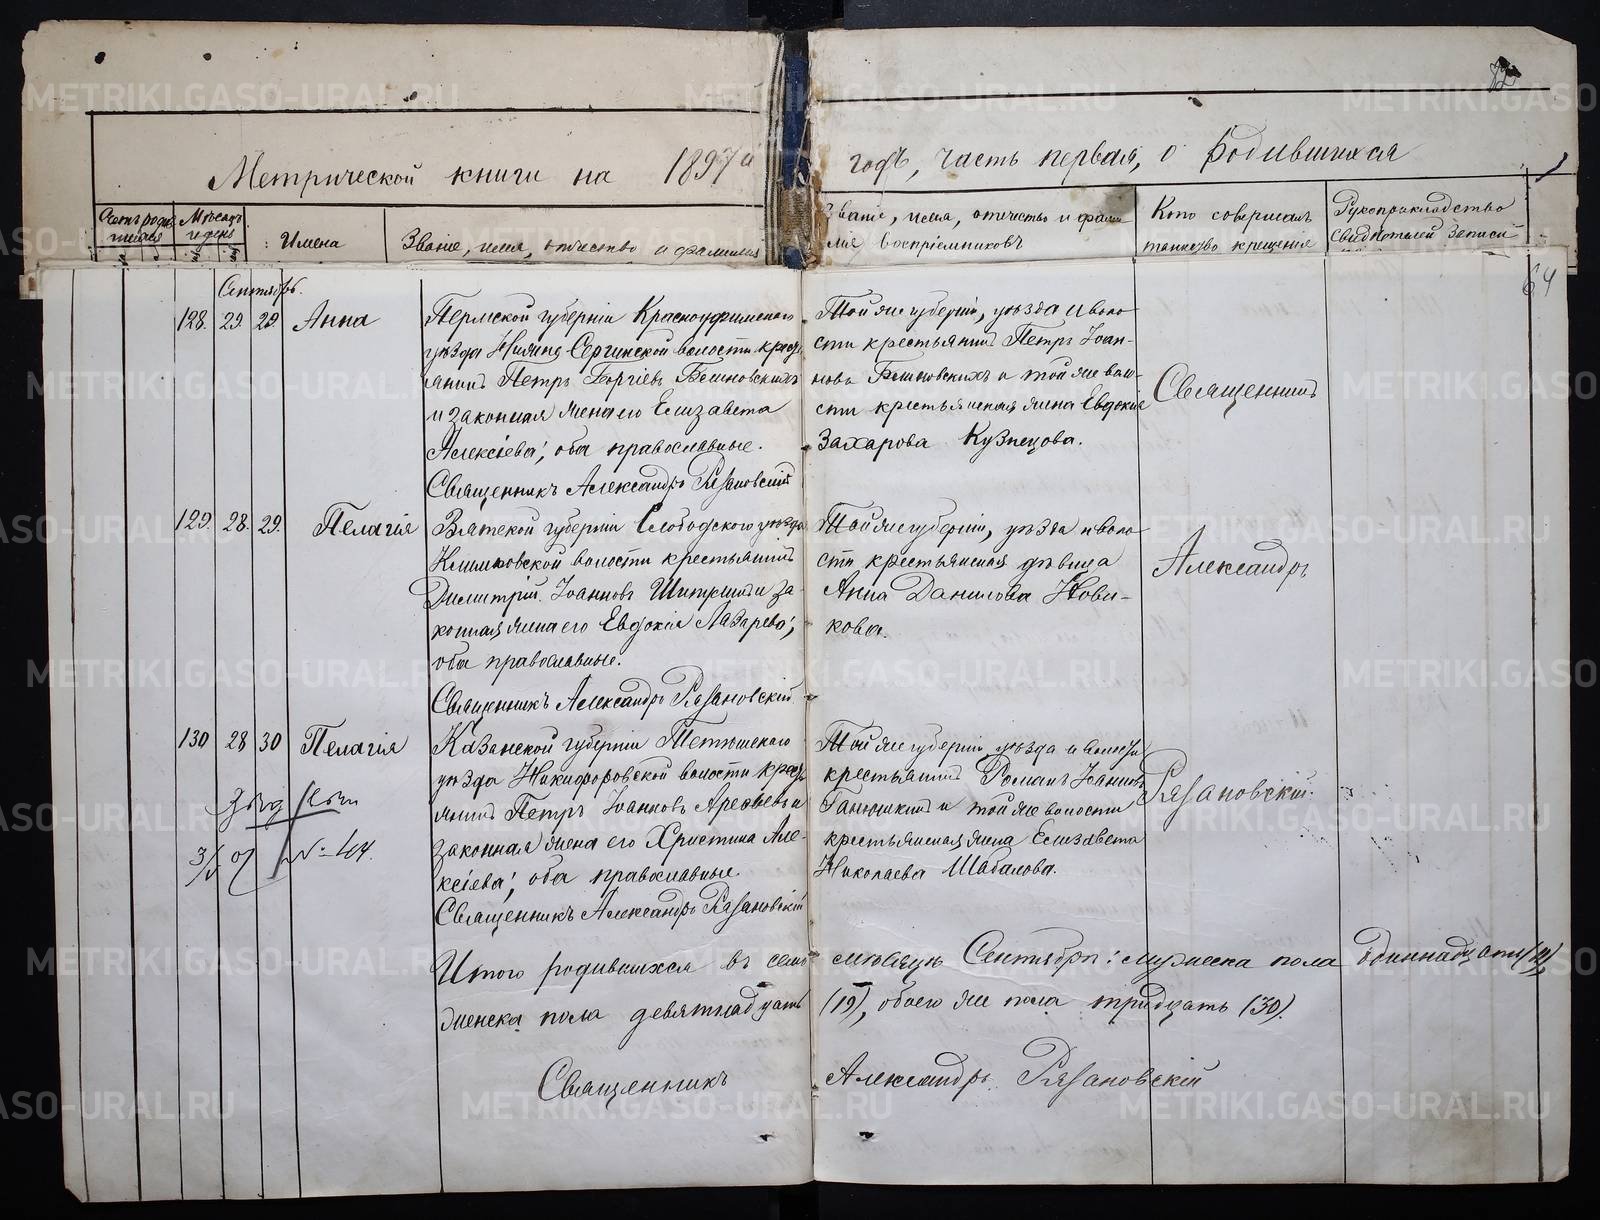 Метрической книги на 1897й годъ, часть первая, о родившихся
Счетъ родив- Мѣсяцъ Имена Званіе, имя, отчество и фамилія
шихся и день
Званіе, имя, отчество и фами-
лія воспріемниковъ
Кто совершалъ
таинство крещенія
Рукоприкладство
свидѣтелей записи
64
Сентябрь.
128. 29. 29. Анна
Пермской губерніи Красноуфимскаго
уѣзда Нижне-Сергинской волости крестья-
янинъ Петръ Георгіевъ
и законная жена его Елизавета
Алексіева; оба православные.
Священникъ Александръ Рязановскій
Той же губерніи, уѣзда и воло-
сти крестьянинъ Петръ Іоан-
новъ и той же воло-
сти крестьянская жена Евдокія
Захарова Кузнецова.
Священникъ
129. 28. 29. Пелагія
Вятской губерніи Слободского уѣзда
волости крестьянинъ
Димитрій Іоанновъ и за-
конная жена его Евдокія Лазарева;
оба православные.
Священникъ Александръ Рязановскій
Той же губерніи, уѣзда и воло-
сти крестьянская дѣвица
Анна Данилова Нови-
кова.
Александръ
130 28 30 Пелагія
Казанской губерніи Тетюшскаго
уѣзда Никифоровской волости крестья-
янинъ Петръ Іоанновъ Арефьевъ и
законная жена его Христина Але-
ксіева; оба православные.
Священникъ Александръ Рязановскій
3/ 07 № 104.
Той же губерніи уѣзда и волости
крестьянинъ Романъ Іоанновъ
и той же волости
крестьянская жена Елизавета
Николаева Шабалова.
Рязановскій.
Итого родившихся въ семъ мѣсяцѣ Сентябрѣ: мужеска пола одиннадцать (11),
женска пола девятнадцать (19), обоего же пола тридцать (30).
Священникъ Александръ Рязановскій
METRIKI.GASO-URAL.RU